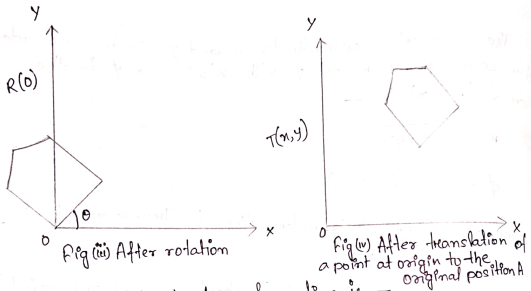 Y
R(θ)
θ
O
X
Fig (iii) After rotation
Y
T(x,y)
O
X
Fig (iv) After translation of
a point at origin to the
original position A